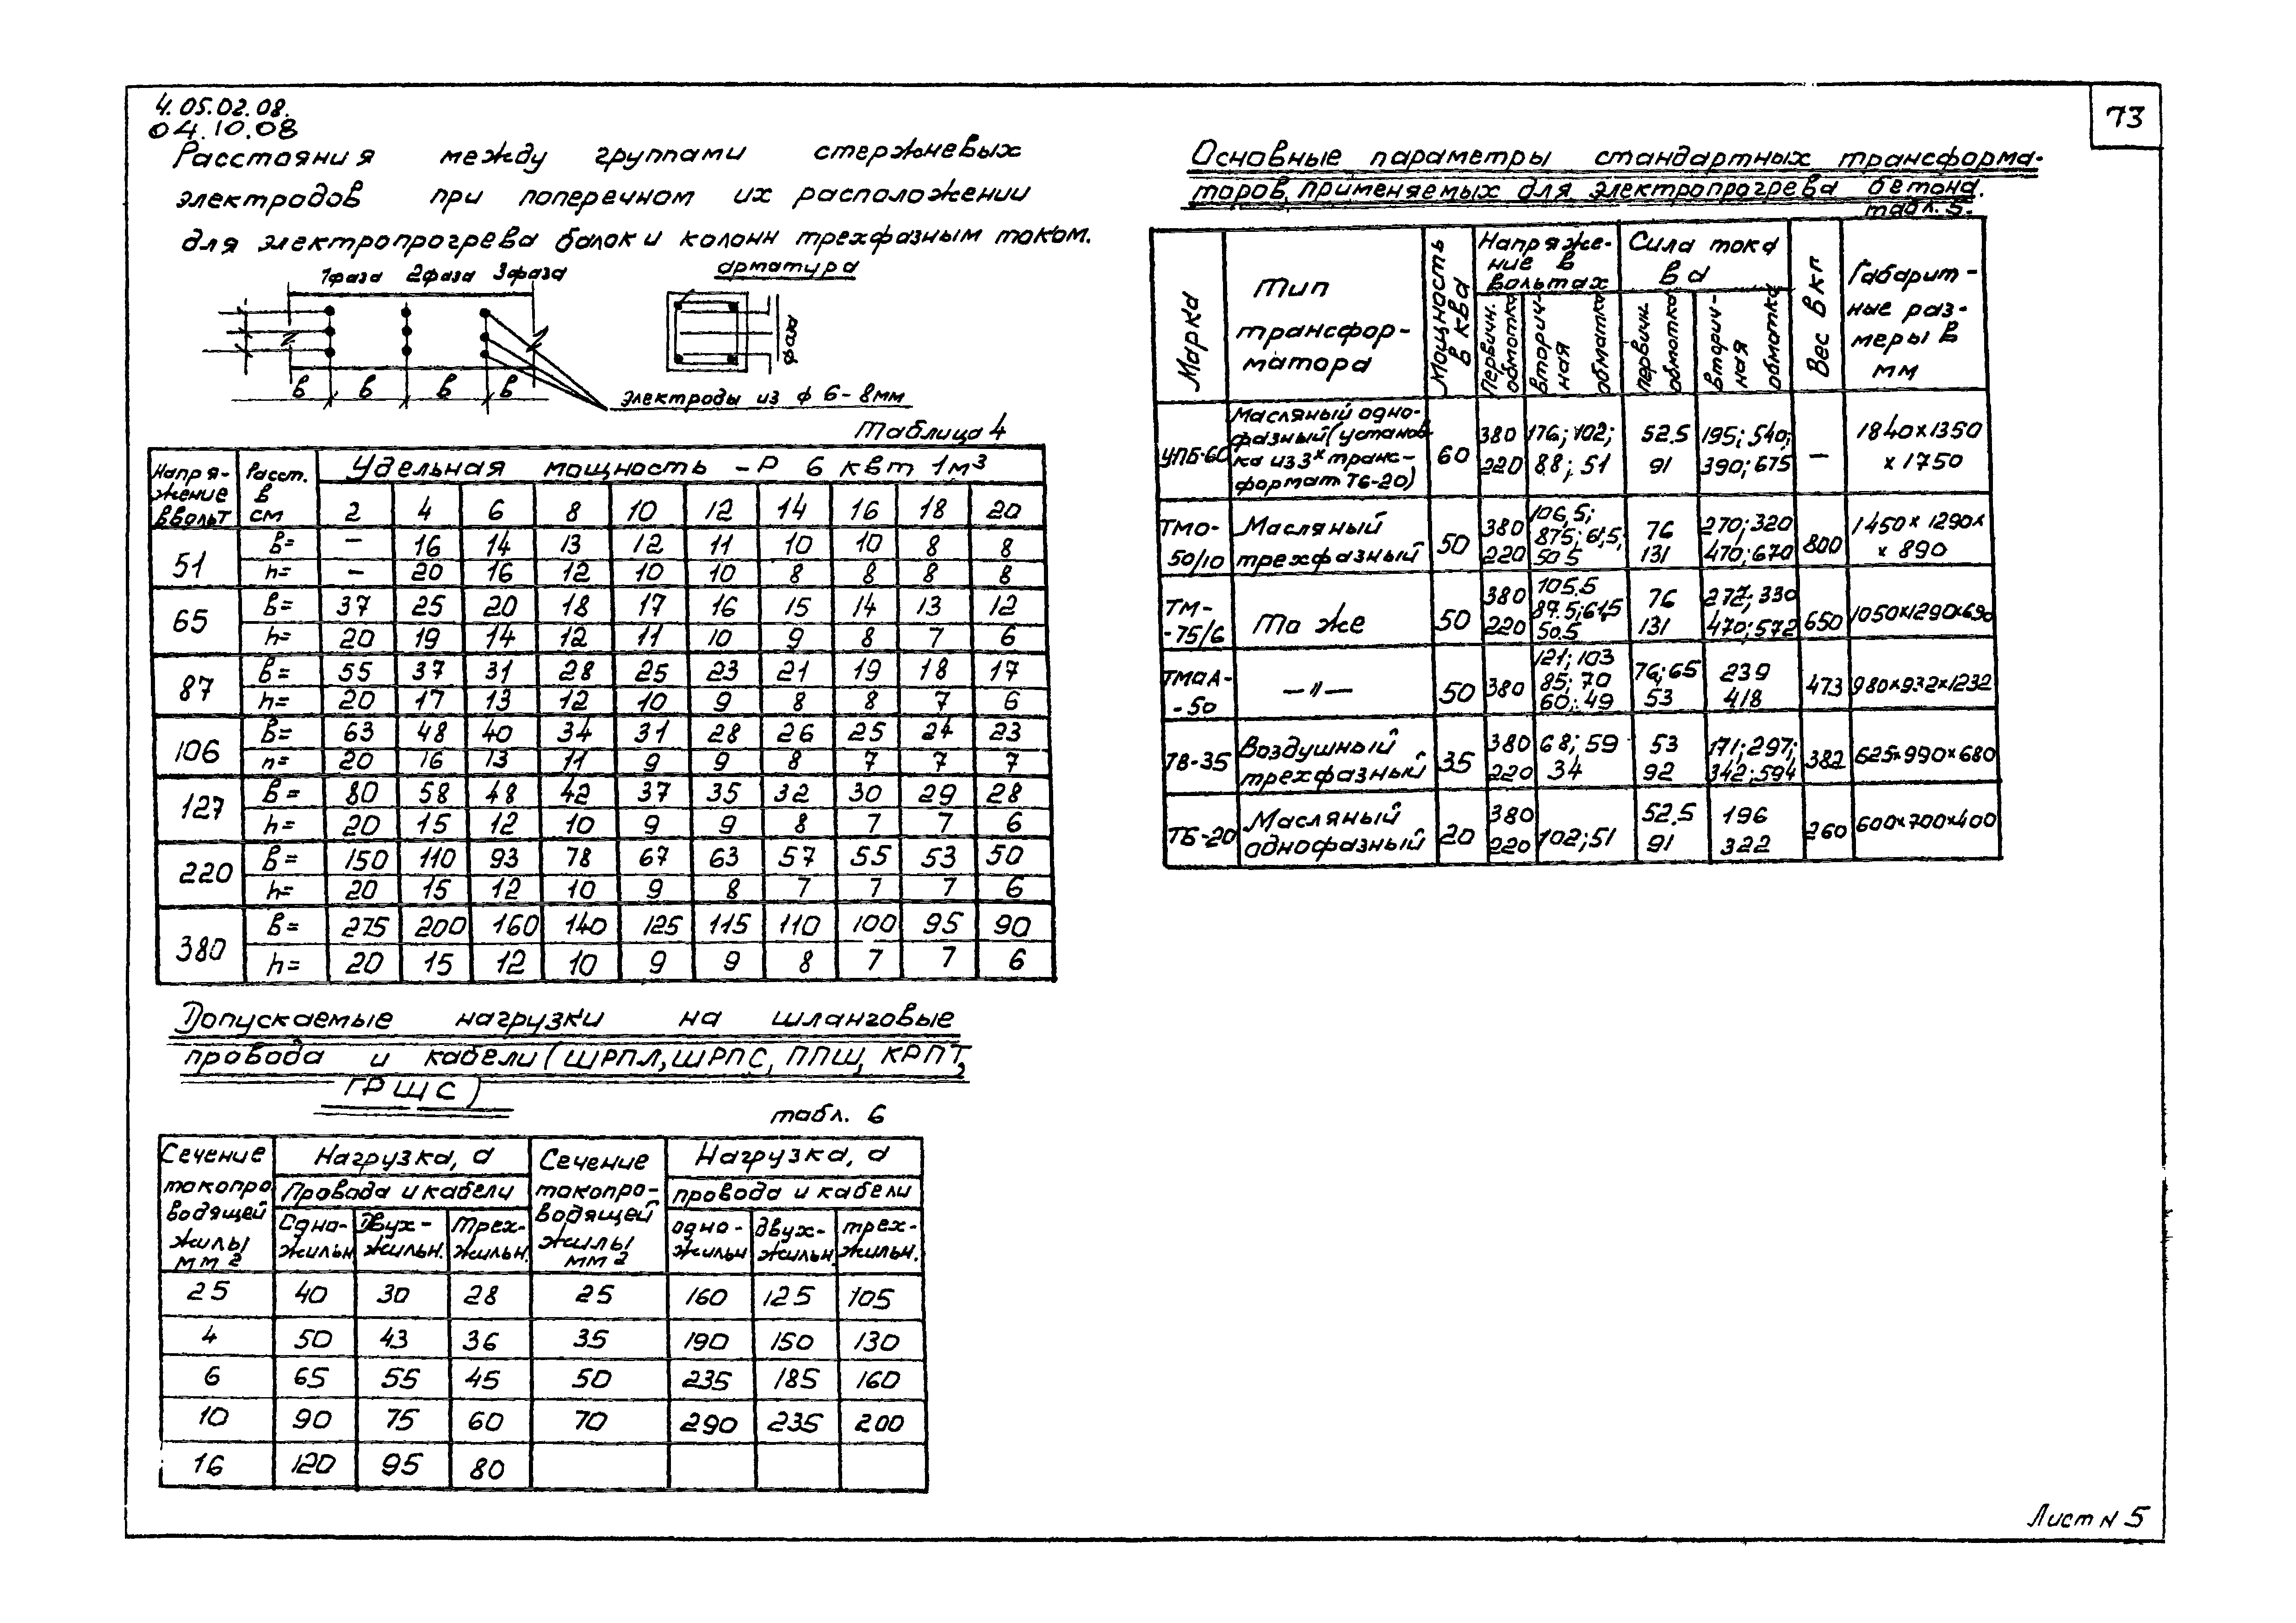 4.05.02.08.
04.10.08
73
Расстояния между группами стержневых
электродов при поперечном их расположении
для электропрогрева балок и колонн трехфазным током.
1фаза 2фаза 3фаза
арматура
фаза
в в в в
электроды из ф 6-8мм
Таблица 4
Напря-жение в вольт | Расст. в см | Удельная мощность - Р в квт 1м³
2 4 6 8 10 12 14 16 18 20
51 в= — 16 14 13 12 11 10 10 8 8
h= — 20 16 12 10 10 8 8 8 8
65 в= 37 25 20 18 17 16 15 14 13 12
h= 20 19 14 12 11 10 9 8 7 6
87 в= 55 37 31 28 25 23 21 19 18 17
h= 20 17 13 12 10 9 8 8 7 6
106 в= 63 48 40 34 31 28 26 25 24 23
h= 20 16 13 11 9 9 8 7 7 7
127 в= 80 58 48 42 37 35 32 30 29 28
h= 20 15 12 10 9 9 8 7 7 6
220 в= 150 110 93 78 67 63 57 55 53 50
h= 20 15 12 10 9 8 7 7 7 6
380 в= 275 200 160 140 125 115 110 100 95 90
h= 20 15 12 10 9 9 8 7 7 6
Допускаемые нагрузки на шланговые
провода и кабели (ШРПЛ, ШРПС, ППШ, КРПТ,
ГРШС)
табл. 6
Сечение токопро водящей жилы мм2 | Нагрузка, а | Сечение токопро-водящей жилы мм2 | Нагрузка, а
Провода и кабели | провода и кабели
Одно-жильн. Двух-жильн. Трех-жильн. | одно-жильн двух-жильн. трех-жильн.
25 40 30 28 25 160 125 105
4 50 43 36 35 190 150 130
6 65 55 45 50 235 185 160
10 90 75 60 70 290 235 200
16 120 95 80
Основные параметры стандартных трансформа-
торов, применяемых для электропрогрева бетона.
табл. 5.
Марка | Тип трансфор-матора | Мощность в ква | Напряже-ние в вольтах | Сила тока в а | Вес в кп | Габарит-ные раз-меры в мм
Первичн. обмотка | вторич-ная обмотка | первичн. обмотка | вторич-ная обмотка
УПБ-60 | Масляный одно-фазный (установ-ка из 3х транс-формат ТБ-20) | 60 | 380 220 | 176; 102; 88; 51 | 52.5 91 | 195; 540; 390; 675 | — | 1840х1350 х1750
ТМО-50/10 | Масляный трехфазный | 50 | 380 220 | 106,5; 875; 61,5; 50 5 | 76 131 | 270; 320 470; 670 | 800 | 1450х 1290х х 890
ТМ--75/6 | То же | 50 | 380 220 | 105.5 87.5; 61,5 50.5 | 76 131 | 272; 330 470; 572 | 650 | 1050х1290х690
ТМОА--50 | —"— | 50 | 380 | 121; 103 85; 70 60; 49 | 76; 65 53 | 239 418 | 473 | 980х932х1232
ТВ-35 | Воздушный трехфазный | 35 | 380 220 | 68; 59 34 | 53 92 | 171; 297; 342; 594 | 382 | 625х990х680
ТБ-20 | Масляный однофазный | 20 | 380 220 | 102; 51 | 52.5 91 | 196 322 | 260 | 600х700х400
Лист N 5